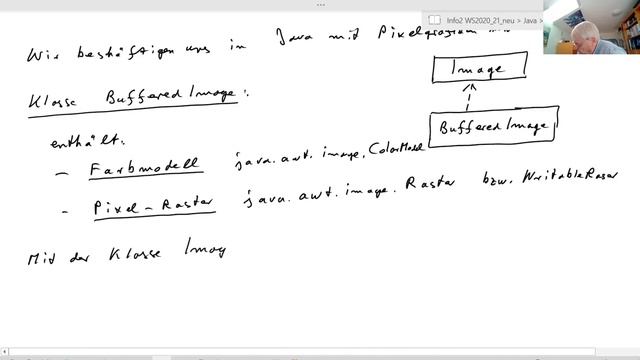 Info2 WS2020_21_neu > Java >
Wir beshäftigen uns in Java mit Pixelgrafiken
Image
Klasse BufferedImage:
BufferedImage
enthält:
- Farbmodell java.awt.image.ColorModel
- Pixel-Raster java.awt.image.Raster bzw. WritableRaser
Mit der Klasse Imag